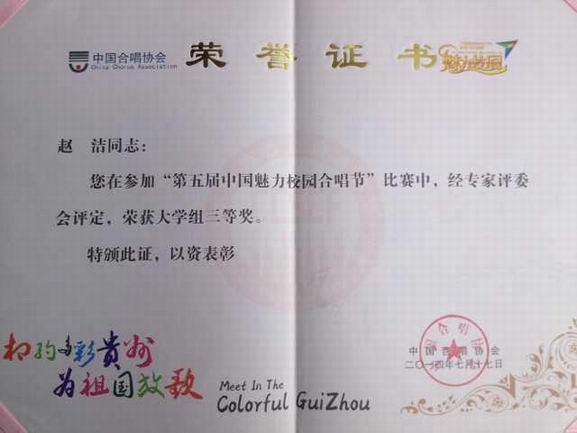 中国合唱协会
China Chorus Association
荣誉证书
魅力校园
赵 洁同志：
您在参加“第五届中国魅力校园合唱节”比赛中，经专家评委
会评定，荣获大学组三等奖。
特颁此证，以资表彰
相约多彩贵州
为祖国放歌
Meet In The
Colorful GuiZhou
中国合唱协会
二〇一四年七月十七日